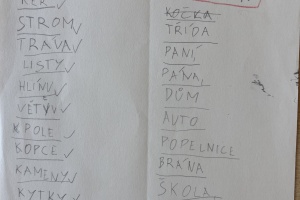 KEŘ
STROM
TRÁVA
LISTY
HLÍNU
VĚTVU
KPOLE
KOPCE
KAMENY
KYTKY
KOČKA
TŘÍDA
PANÍ
PÁNA
DŮM
AUTO
POPELNICE
BRÁNA
ŠKOLA